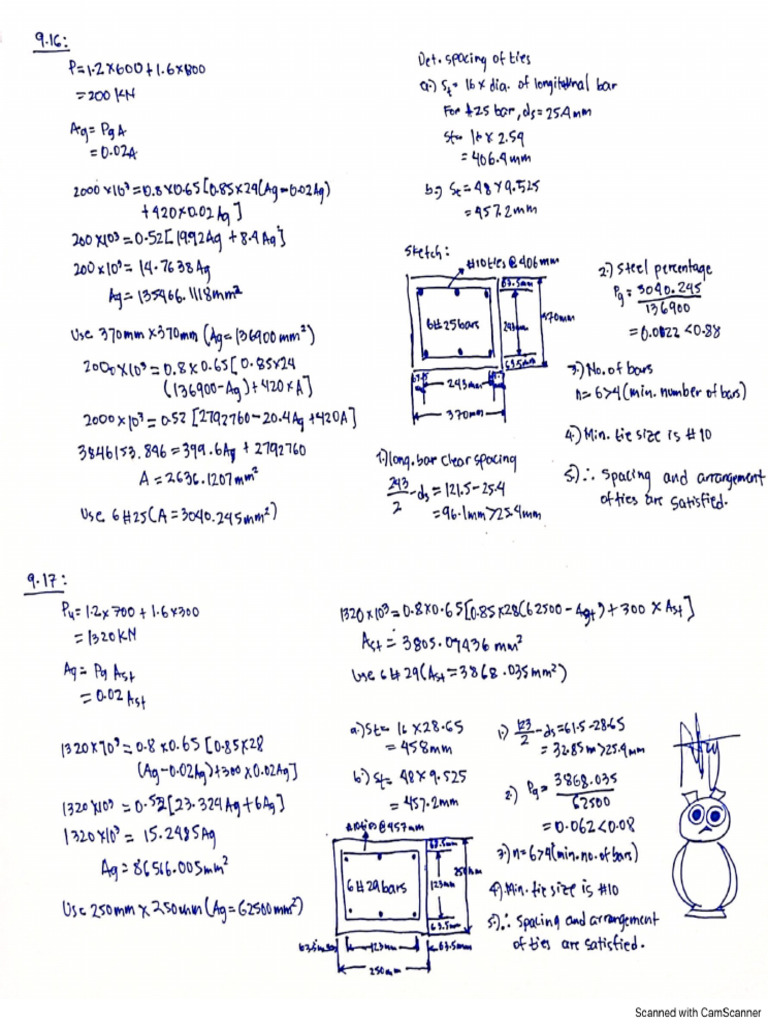 9.16:
P=1.2×600+1.6×800
=200KN
Ag=PgA
=0.02A
2000×10³=0.8×0.65[0.85×24(Ag-0.02Ag)
+420×0.02Ag]
200×10³=0.52[19.992Ag+8.4Ag]
200×10³=14.7638Ag
Ag=135466.1118mm²
Use 370mm×370mm(Ag=136900mm²)
2000×10³=0.8×0.65[0.85×24
(136900-Ag)+420×A]
2000×10³=0.52[2792760-20.4Ag+420A]
3846153.846=399.6Ag+2792760
A=2636.1207mm²
Use 6#25(A=3040.245mm²)
Det. spacing of ties
a.) St=16×dia. of longitudinal bar
For #25 bar, ds=25.4mm
St=16×2.54
=406.4mm
b.) St=48×9.525
=457.2mm
Sketch:
#10ties@406mm
63.5mm
6#25bars
243mm
370mm
63.5mm
63.5
243mm
370mm
1.) long. bar clear spacing
243/2-ds=121.5-25.4
=96.1mm>25.4mm
2.) Steel percentage
Pg=3040.245/136900
=0.0022<0.88
3.) No. of bars
n=6>4(min. number of bars)
4.) Min. tie size is #10
5.) ∴ Spacing and arrangement
of ties are satisfied.
9.17:
Pu=1.2×700+1.6×300
=1320KN
Ag=Pg Ast
=0.02Ast
1320×10³=0.8×0.65[0.85×28
(Ag-0.02Ag)+300×0.02Ag]
1320×10³=0.52[23.324Ag+6Ag]
1320×10³=15.2485Ag
Ag=86566.005mm²
Use 250mm×250mm(Ag=62500mm²)
1320×10³=0.8×0.65[0.85×28(62500-Agt)+300×Ast]
Ast=3805.07436mm²
Use 6#29(Ast=3868.035mm²)
a.) St=16×28.65
=458mm
b.) St=48×9.525
=457.2mm
#10ties@457mm
63.5mm
6#29bars
123mm
250mm
63.5mm
63.5mm
123mm
63.5mm
250mm
1.) 123/2-ds=61.5-28.65
=32.85m>25.4mm
2.) Pg=3868.035/62500
=0.062<0.08
3.) n=6>4(min.no.of bars)
4.) Min. tie size is #10
5.) ∴ Spacing and arrangement
of ties are satisfied.
Scanned with CamScanner